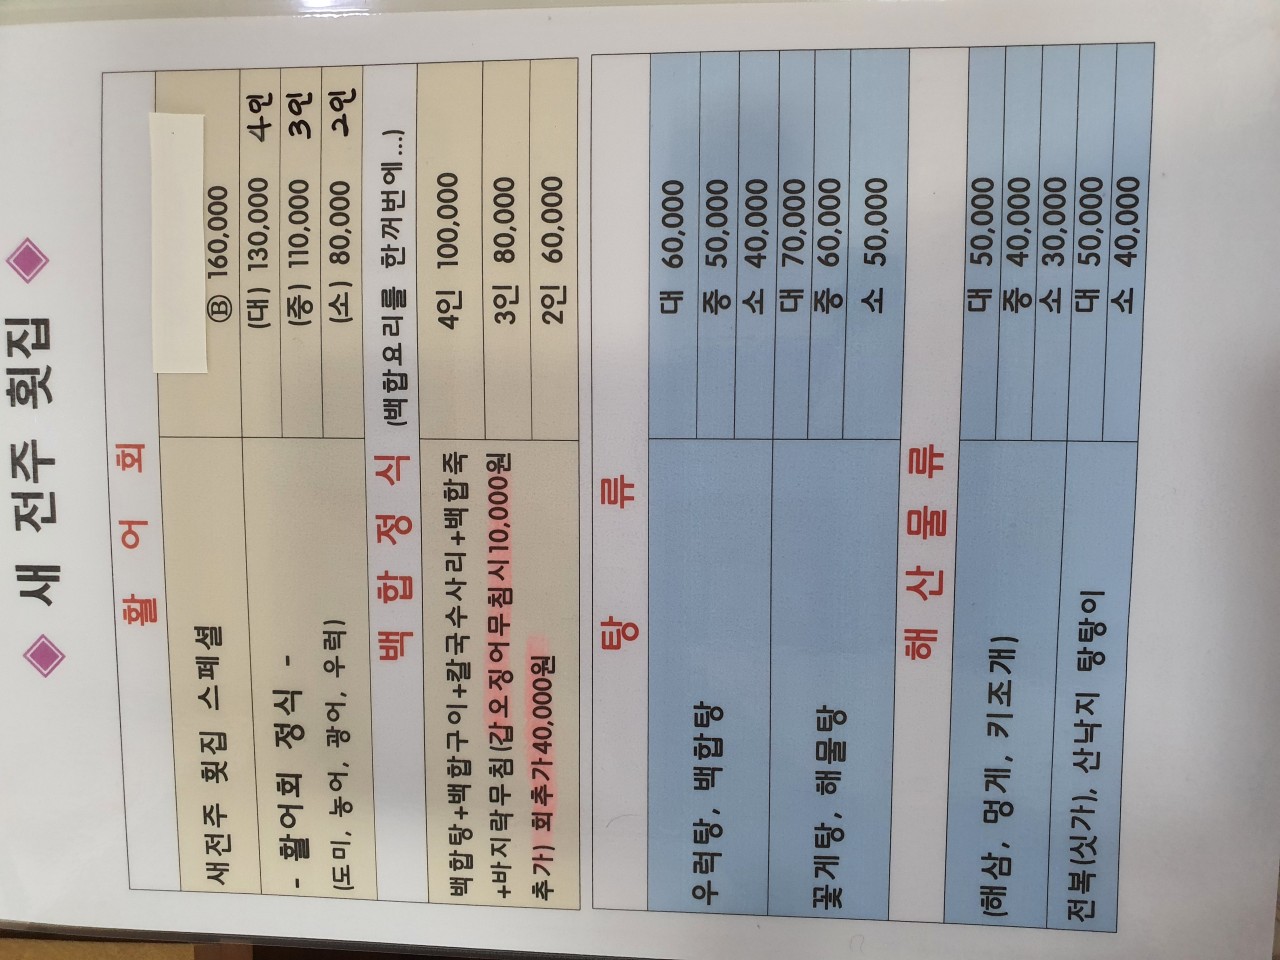 새 전주 횟집
활 어 회
새전주 횟집 스페셜
Ⓑ 160,000
- 활어회 정식 -
(도미, 농어, 광어, 우럭)
(대) 130,000 4인
(중) 110,000 3인
(소) 80,000 2인
백 합 정 식 (백합요리를 한꺼번에...)
백합탕+백합구이+칼국수사리+백합죽
+바지락무침(갑오징어무침시10,000원
추가) 회추가40,000원
4인 100,000
3인 80,000
2인 60,000
탕 류
우럭탕, 백합탕
대 60,000
중 50,000
소 40,000
꽃게탕, 해물탕
대 70,000
중 60,000
소 50,000
해 산 물 류
(해삼, 멍게, 키조개)
대 50,000
중 40,000
소 30,000
전복(싯가), 산낙지 탕탕이
대 50,000
소 40,000